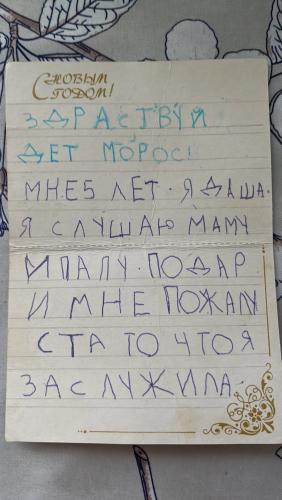 С НОВЫМ
ГОДОМ!
ЗДРАСТВУЙ
ДЕТ МОРОС!
МНЕ5 ЛЕТ. Я ДАША.
Я СЛУШАЮ МАМУ
И ПАПУ. ПОДАР
И МНЕ ПОЖАЛУ
СТА ТО ЧТО Я
ЗАСЛУЖИЛА.